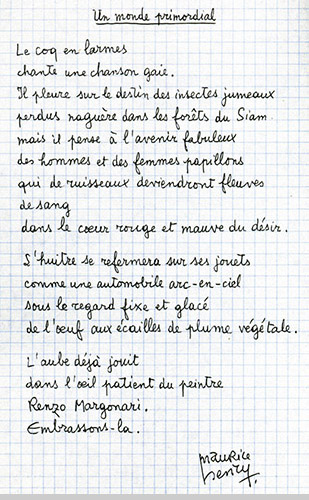 Un monde primordial
Le coq en larmes
chante une chanson gaie.
Il pleure sur le destin des insectes jumeaux
perdus naguère dans les forêts du Siam
mais il pense à l'avenir fabuleux
des hommes et des femmes papillons
qui de ruisseaux deviendront fleuves
de sang
dans le cœur rouge et mauve du désir.
L'huitre se refermera sur ses jouets
comme une automobile arc-en-ciel
sous le regard fixe et glacé
de l'œuf aux écailles de plume végétale.
L'aube déjà jouit
dans l'œil patient du peintre
Renzo Margonari.
Embrassons-la.
Maurice
Henry.